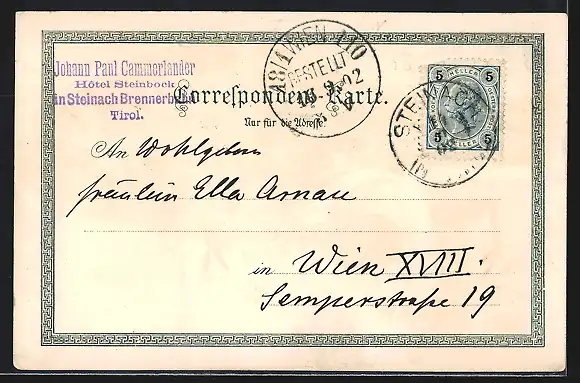 Johann Paul Cammerlander
Hôtel Steinbock
in Steinach Brennerbahn
Tirol.
18/1 WIEN 110
BESTELLT
9 02
Correspondenz-Karte.
Nur für die Adresse
5 HELLER 5
5 HELLER 5
STEINACH
An Wohlgeboren
Fräulein Ella Arnau
in Wien XVIII.
Semperstraße 19